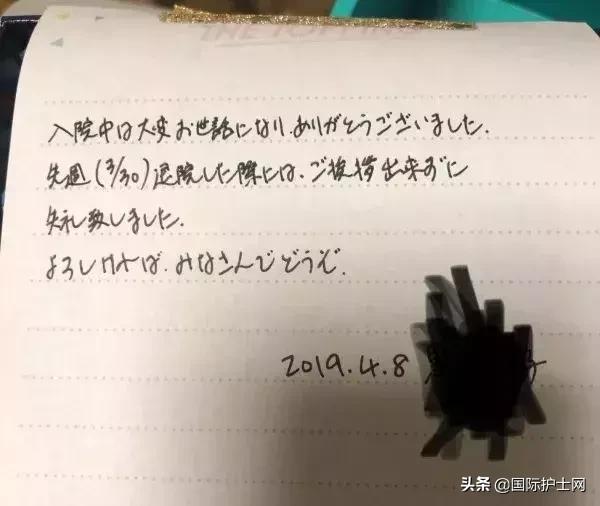 入院中は大変お世話になり、ありがとうございました。
先週(3/30)退院した際には、ご挨拶出来ずに
失礼致しました。
よろしければ、みなさんでどうぞ。
2019.4.8
头条 @国际护士网